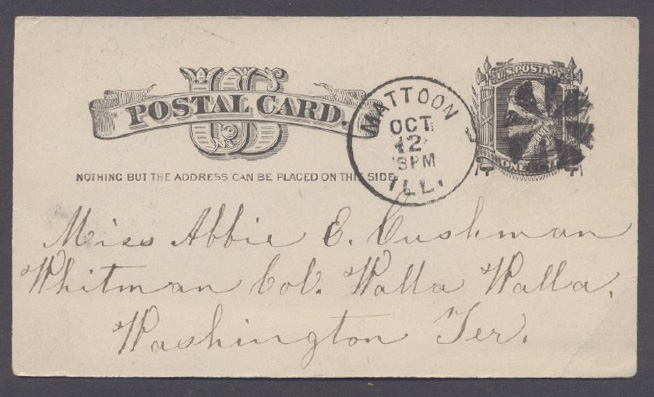 US
POSTAL CARD.
NOTHING BUT THE ADDRESS CAN BE PLACED ON THIS SIDE
MATTOON
OCT
12
3PM
ILL.
U.S. POSTAGE
Miss Abbie E. Cushman
Whitman Col. Walla Walla,
Washington Ter.